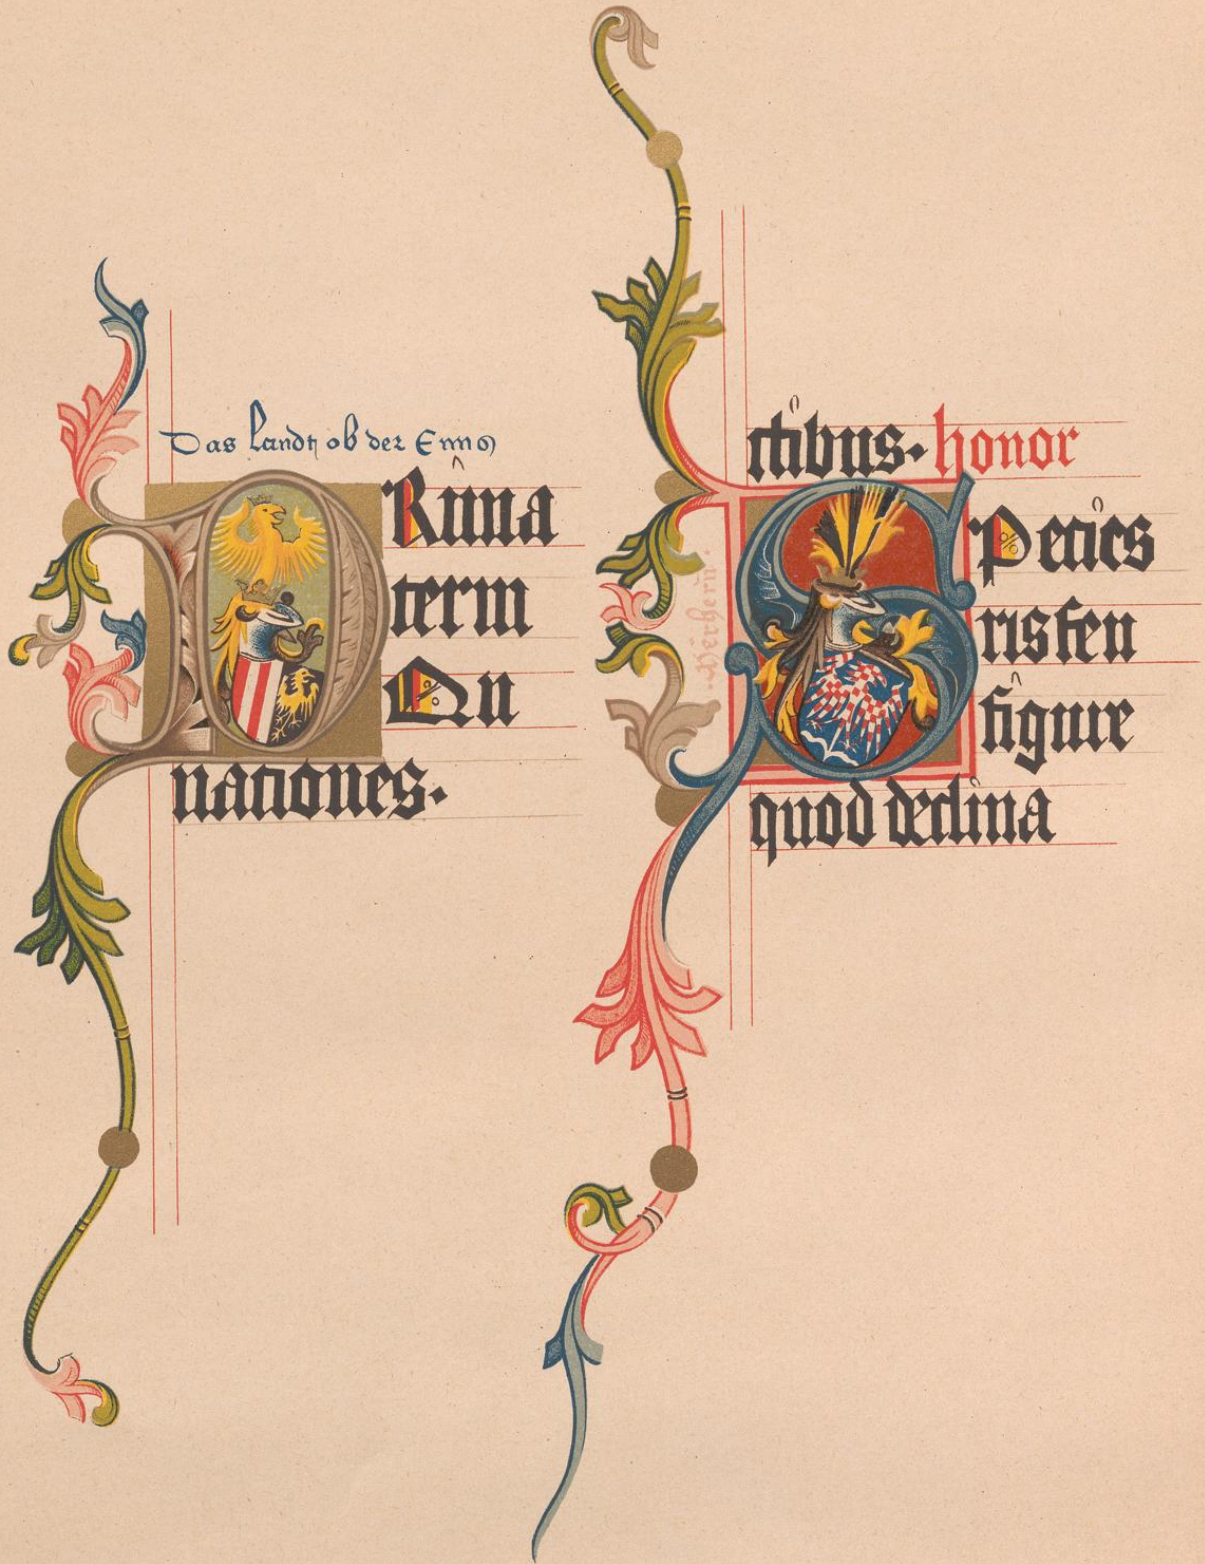 Das Landt ob der Enns
PRima
term
Qu
nationes.
ctibus. honor
SPecies
ris feu
figure
quod declina